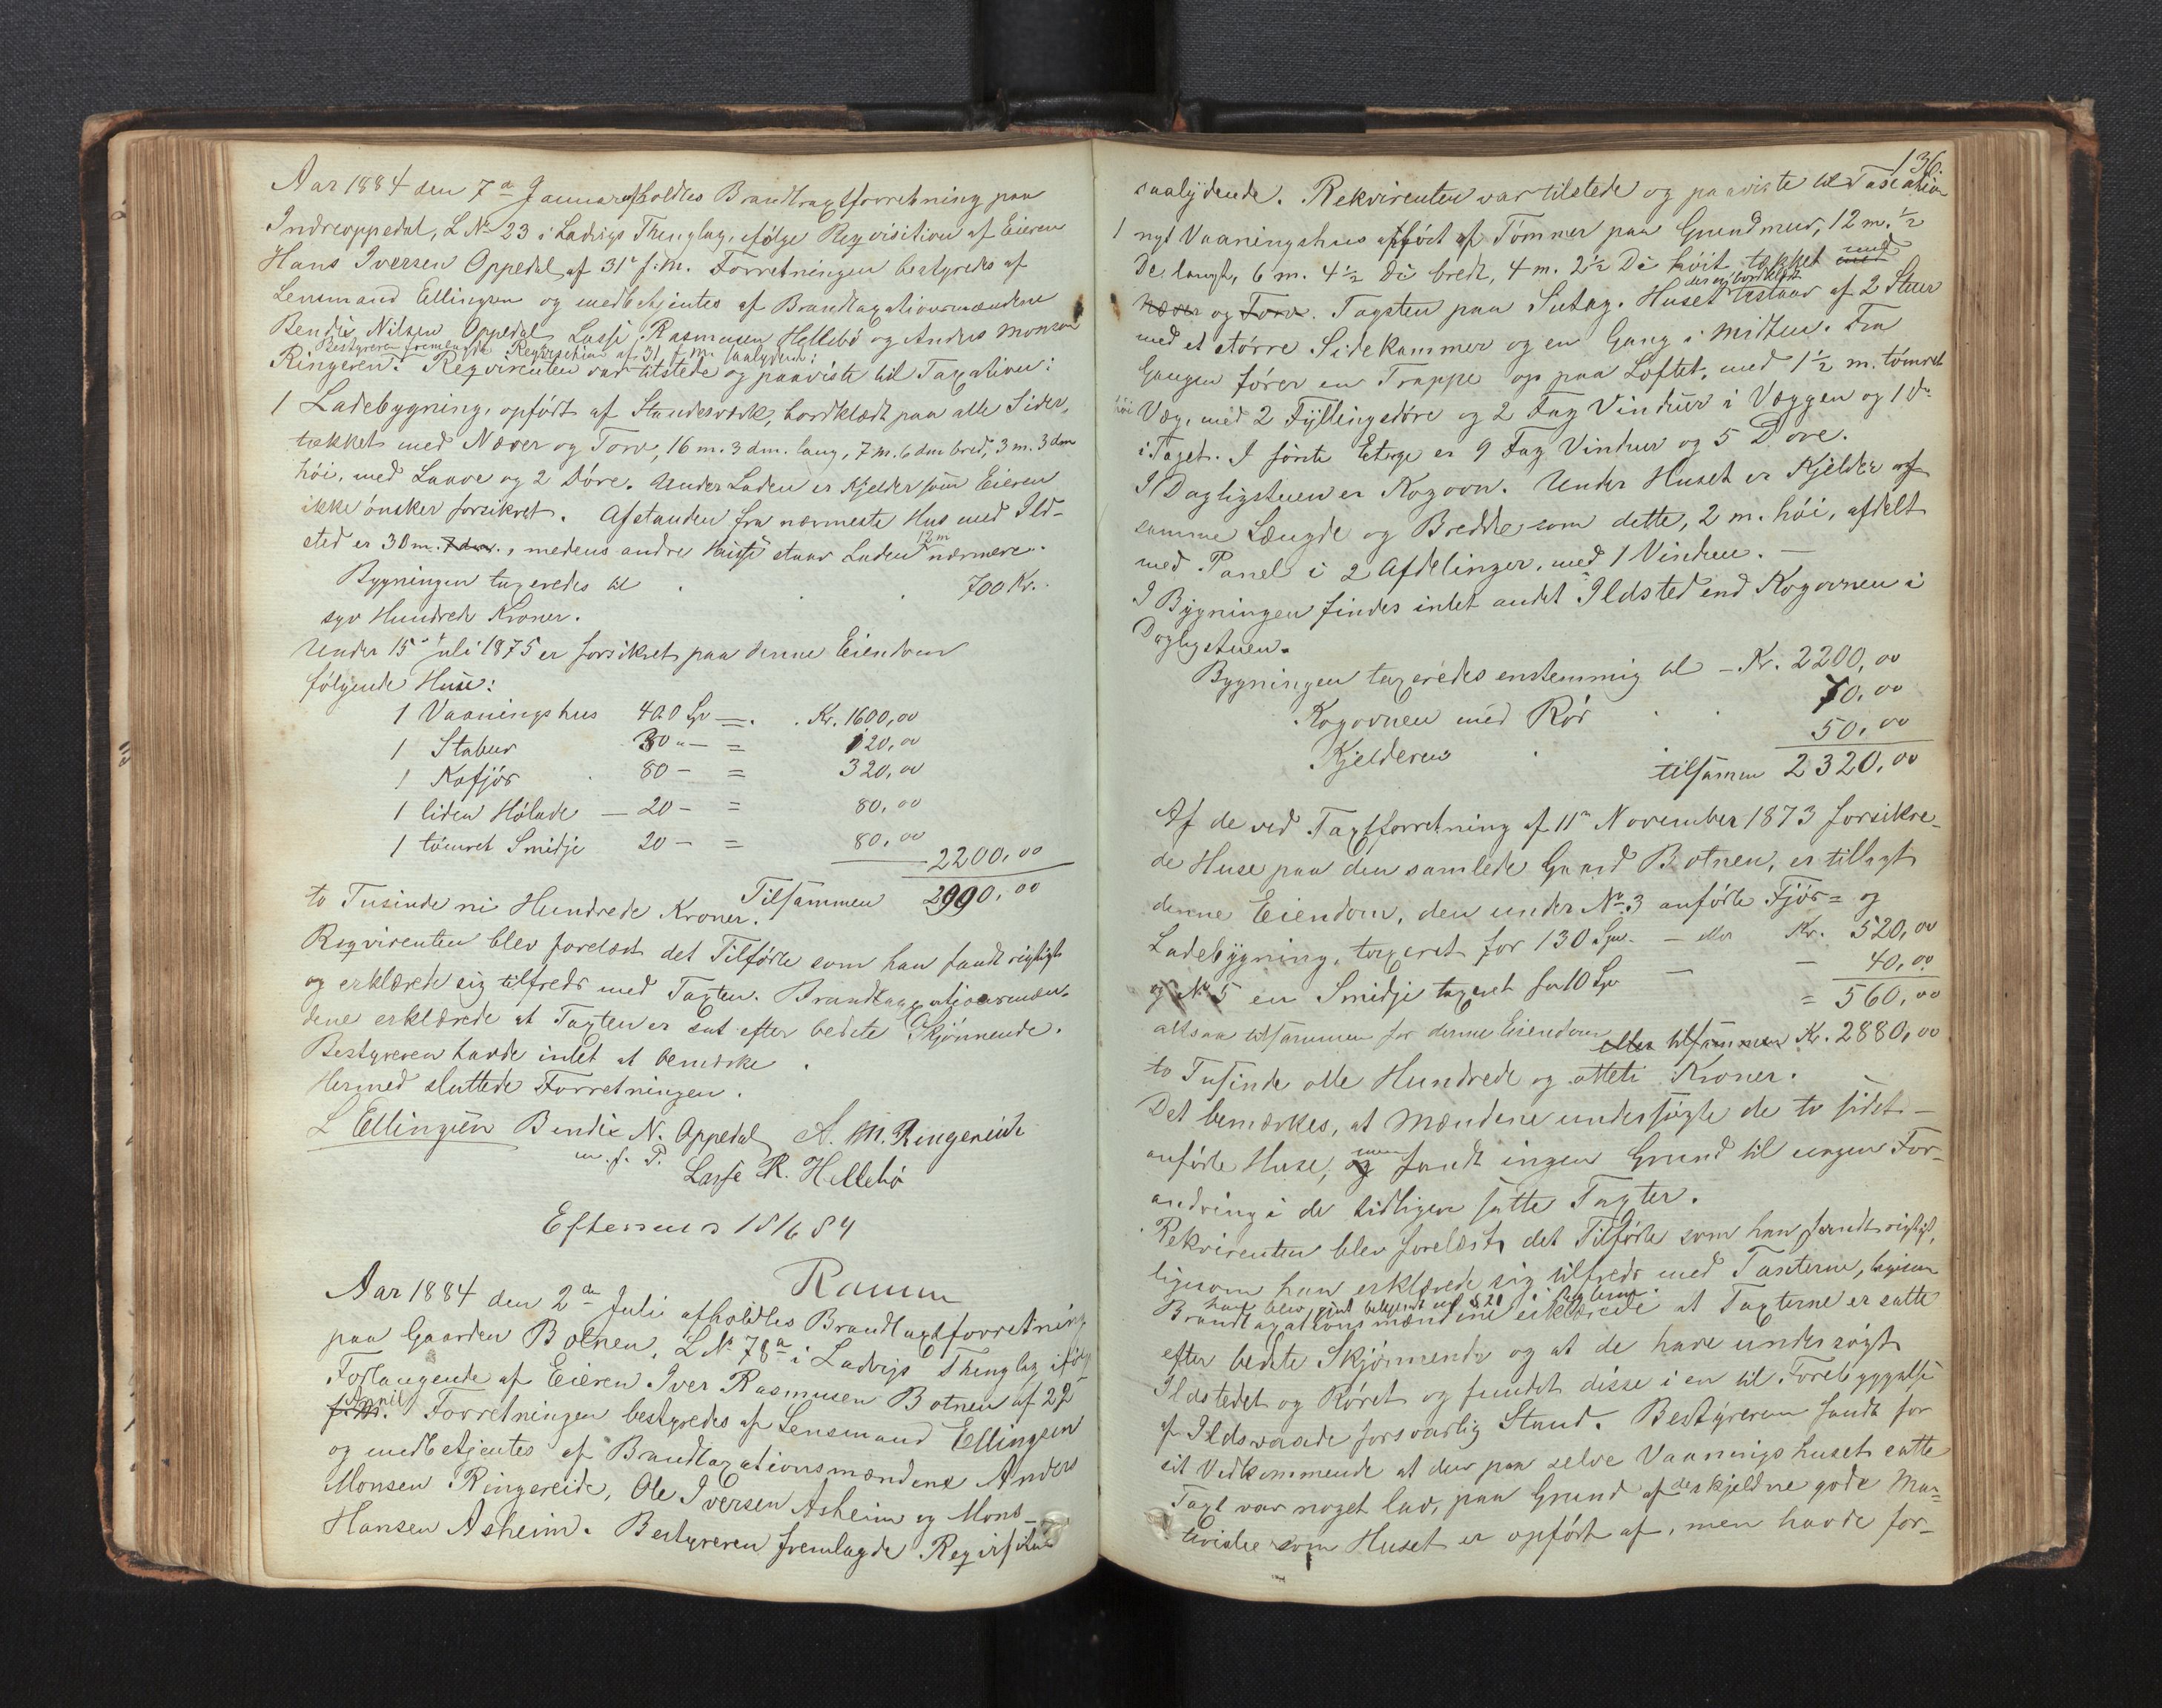 Aar 1884 den 7de Januar afholdtes Brandtaxtforretning paa
Indreoppedal, L No 23 i Ladvigs Thinglag, ifølge Reqvisition af Eieren
Hans Iversen Oppedal af 31te f. m. Forretningen bestyredes af
Lensmand Ellingsen og medbetjentes af Brandtaxationsmændene
Bendix Nilsen Oppedal, Lasse Rasmusen Hellebø og Anders Monsen
Bestyreren fremlagde Reqvisition af 31 f. m. saalydende:
Ringereid. Reqvirenten var tilstede og paaviste til Taxation:
1 Ladebygning, opført af Standesværk, bordklædt paa alle Sider,
tækket med Næver og Torv, 16 m. 3 dm. lang, 7 m. 6 dm bred, 3 m. 3 dm
høi, med Laave og 2 Døre. Under Laden er Kjelder som Eieren
ikke ønsker forsikret. Afstanden fra nærmeste Hus med Ild-
sted er 30 m. 7 dm., medens andre Huse staar Laden 12 m nærmere.
Bygningen taxeredes til . . . 700 Kr.
syv Hundrede Kroner.
Under 15de Juli 1875 er forsikret paa denne Eiendom
følgende Huse:
1 Vaaningshus 400 Sp = . Kr. 1600,00
1 Stabur 30 " = 120,00
1 Kofjøs . 80 - = 320,00
1 liden Hølade - 20 - = 80,00
1 tømret Smidje 20 - = 80,00
2200,00
Tilsammen 2900,00
to Tusinde ni Hundrede Kroner.
Reqvirenten blev forelæst det Tilførte som han fandt rigtigt
og erklærede sig tilfreds med Taxten. Brandtaxationsmæn-
dene erklærede at Taxten er sat efter bedste Skjønnende.
Bestyreren havde intet at bemærke.
Hermed sluttede Forretningen.
L Ellingsen Bendix N. Oppedal A. M. Ringereide
m. f. P. Lasse R. Hellebø
Efterseet 18/6 84
Ramm
Aar 1884 den 2den Juli afholdtes Brandtaxtforretning
paa Gaarden Botnen, L No 78a i Ladvigs Thinglag, ifølge
Forlangende af Eieren Iver Rasmusen Botnen af 22
April
f. M. Forretningen bestyredes af Lensmand Ellingsen
og medbetjentes af Brandtaxationsmændene Anders
Monsen Ringereide, Ole Iversen Asheim og Mons
Hansen Asheim. Bestyreren fremlagde Reqvisition
136.
saalydende. Rekvirenten var tilstede og paaviste til Taxation
1 nyt Vaaningshus opført af Tømmer paa Grundmur, 12 m. ½
De langt, 6 m. 4½ De bredt, 4 m. 2½ De høit tækket med
Næver og Torv. Tagsten paa Sutag. Huset der ej bordklædt bestaar af 2 Stuer
med et større Sidekammer og en Gang i Midten. Fra
Gangen fører en Trappe op paa Loftet, med 1½ m. tømret
høi Væg, med 2 Fyllingsdøre og 2 Fag Vinduer i Væggen og 1 do
i Taget. I første Etage er 9 Fag Vinduer og 5 Døre.
I Dagligstuen er Kogovn. Under Huset er Kjelder af
samme Længde og Bredde som dette, 2 m. høi, afdelt
med Panel i 2 Afdelinger, med 1 Vindue. -
I Bygningen findes intet andet Ildsted end Kogovnen i
Dagligstuen.
Bygningen taxeredes enstemmig til - Kr. 2200,00
Kogovnen med Rør . . 70,00
Kjelderen . . 50,00
tilsammen 2320,00
Af de ved Taxtforretning af 11te November 1873 forsikre-
de Huse paa den samlede Gaard Botnen, er tillagt
denne Eiendom, den under No 3 anførte Fjøs- og
Ladebygning, taxeret for 130 Spd. - eller Kr. 520,00
og No 5 en Smidje taxeret for 10 Sp - - 40,00
= 560,00
altsaa tilsammen for denne Eiendom eller tilsammen Kr. 2880,00
to Tusinde otte Hundrede og otteti Kroner.
Det bemærkes, at Mændene undersøgte de to sidst-
anførte Huse, og men fandt ingen Grund til nogen For-
andring i de tidligere satte Taxter.
Rekvirenten blev forelæst det Tilførte som han fandt rigtigt,
ligesom han erklærede sig tilfreds med Taxterne, ligesom
han blev gjort bekjendt med § 21 i
Brandtaxationsmændene erklærede at Taxterne er satte
efter bedste Skjønnende og at de have undersøgt
Ildstedet og Røret og fundet disse i en til Forebyggelse
af Ildsvaade forsvarlig Stand. Bestyreren fandt for
sit Vedkommende at den paa selve Vaaningshuset satte
Taxt var noget lav, paa Grund af de skjeldne gode Ma-
terialer som Huset er opført af, men havde for-